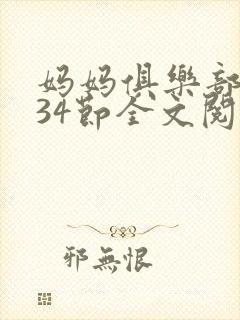 妈妈俱樂部
34節全文閱
邪無恨